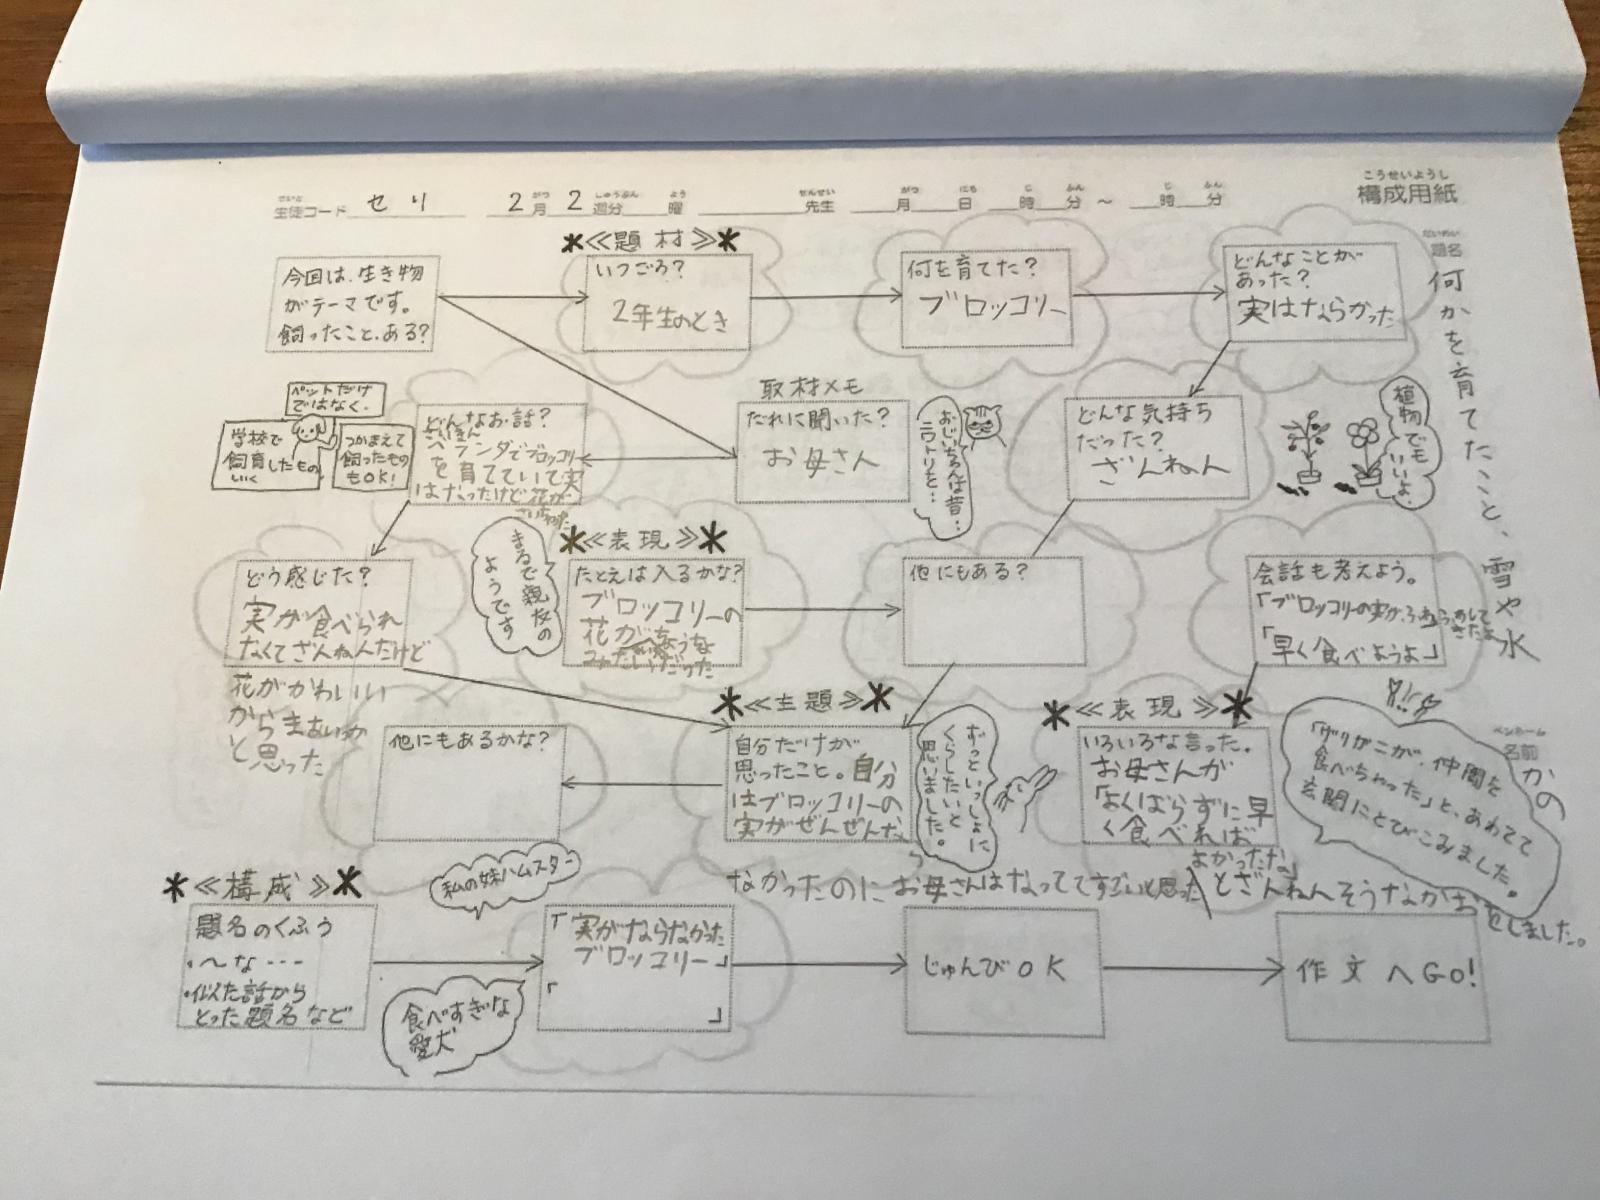 こうせいようし
構成用紙
せいと がつ しゅうぶん よう せんせい がつ にち じ ふん じ ふん
生徒コード セリ 2月 2週分 曜 先生 月 日 時 分 ～ 時 分
だいめい
題名
何かを育てたこと、雪や氷
ペンネーム
名前 かの
今回は、生き物
がテーマです。
飼ったこと、ある?
＊≪題材≫＊
いつごろ?
2年生のとき
何を育てた?
ブロッコリー
どんなことが
あった?
実はならかった
ペットだけ
ではなく、
学校で
飼育したもの
いく
つかまえて
飼ったもの
もOK!
どんなお話?
ベランダでブロッコリー
を育てていて実
はなったけど花が
さいちゃった
取材メモ
だれに聞いた?
お母さん
おじいちゃんは昔…
ニワトリを…
どんな気持ち
だった?
ざんねん
植物でも
いいよ。
どう感じた?
実が食べられ
なくてざんねんだけど
花がかわいい
からまあいいか
と思った
まるで親友の
ようです
＊≪表現≫＊
たとえは入るかな?
ブロッコリーの
花が
他にもある?
会話も考えよう。
「早く食べようよ」
他にもあるかな?
＊≪主題≫＊
自分だけが
思ったこと。自分
はブロッコリーの
実がぜんぜんな
ら
なかったのにお母さんはなっててすごいと思った
ずっといっしょに
くらしたいと
思いました。
＊≪表現≫＊
いろいろな言った。
お母さんが
「よくばらずに早
く食べれば
よかったな」
とざんねんそうなかおをしました。
「ザリガニが、仲間を
食べちゃった」と、あわてて
玄関にとびこみました。
＊≪構成≫＊
題名のくふう
・～な…
・似た話から
とった題名など
私の妹ハムスター
食べすぎな
愛犬
「実がならなかった
ブロッコリー」
「
」
じゅんびOK
作文へGO!